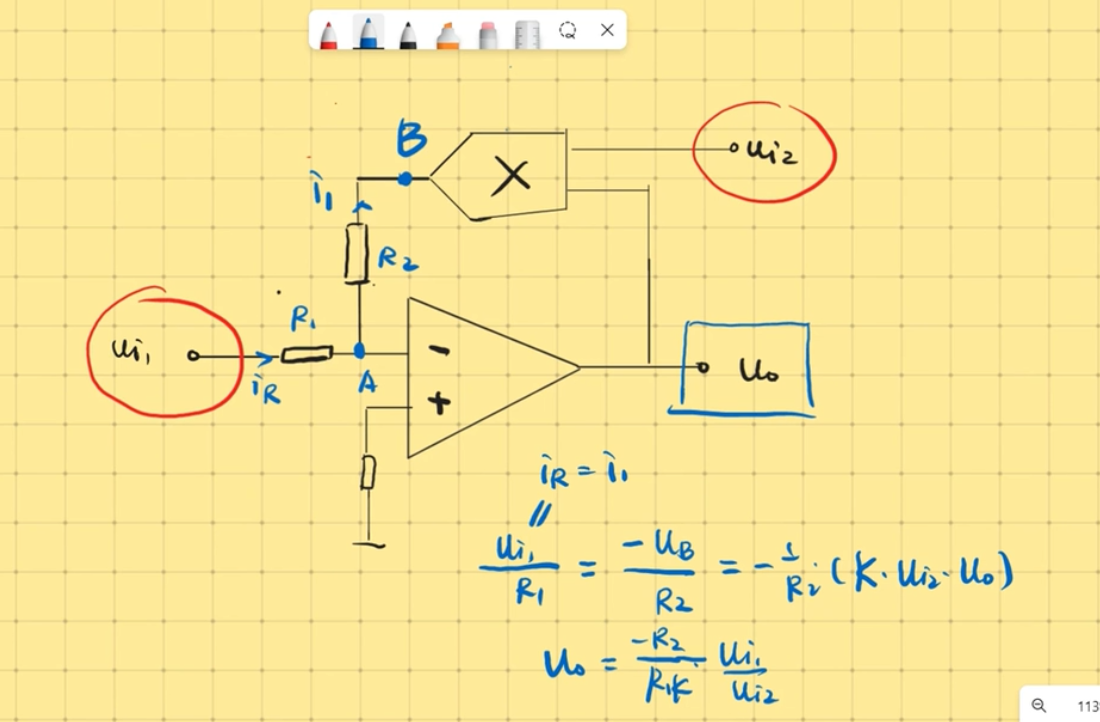 B
X
ui2
i1
R2
R1
ui1
iR
A
-
+
uo
iR = i1
||
ui1/R1 = -uB/R2 = -1/R2·(K·ui2·uo)
uo = -R2/R1K ui1/ui2
113